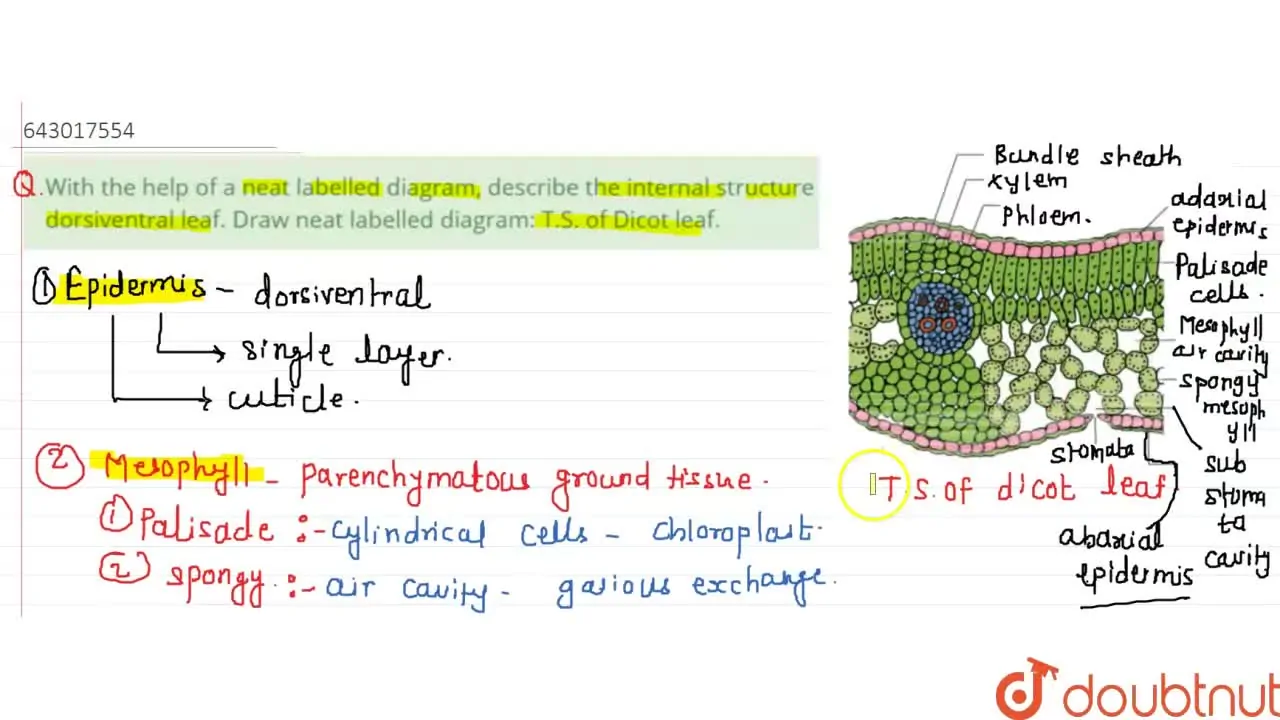 643017554
Q. With the help of a neat labelled diagram, describe the internal structure
dorsiventral leaf. Draw neat labelled diagram: T.S. of Dicot leaf.
① Epidermis - dorsiventral
single layer.
cuticle.
② Mesophyll - parenchymatous ground tissue.
① Palisade :- cylindrical cells - chloroplast.
② spongy :- air cavity - gasious exchange.
Bundle sheath
xylem
Phloem.
adaxial
epidermis
Palisade
cells.
Mesophyll
air cavity
spongy
mesoph
yll
stomata
sub
stoma
ta
cavity
T.S. of dicot leaf
abaxial
epidermis
doubtnut